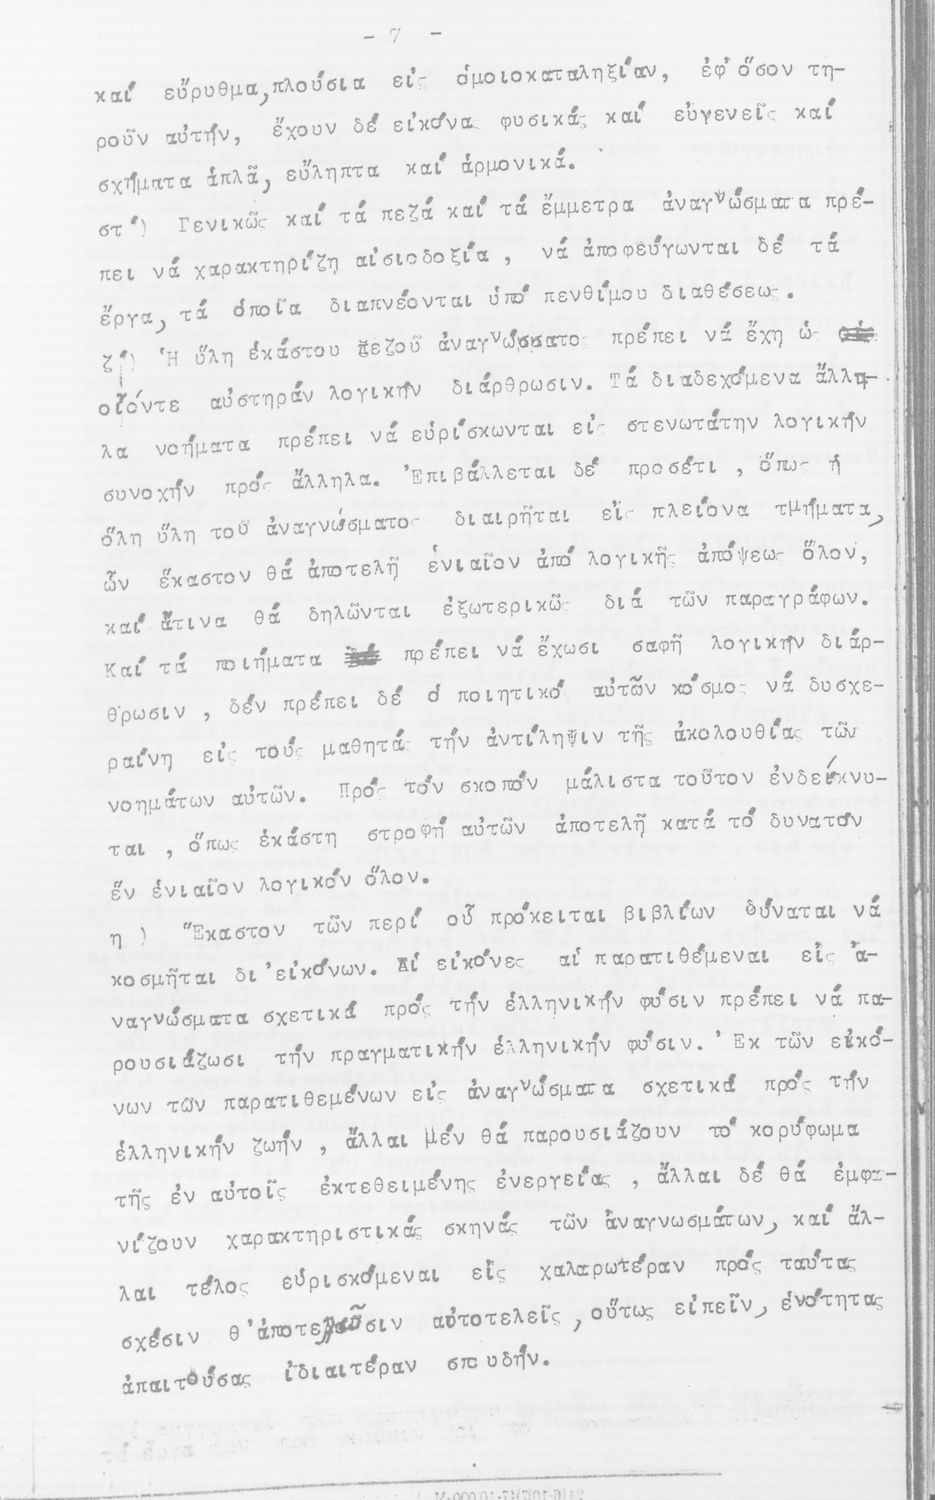 - 7 -
καί εὔρυθμα, πλούσια εἰς ὁμοιοκαταληξίαν, ἐφ' ὅσον τη-
ροῦν αὐτήν, ἔχουν δέ εἰκόνας φυσικάς καί εὐγενεῖς καί
σχήματα ἁπλᾶ, εὔληπτα καί ἁρμονικά.
στ') Γενικῶς καί τά πεζά καί τά ἔμμετρα ἀναγνώσματα πρέ-
πει νά χαρακτηρίζη αἰσιοδοξία, νά ἀποφεύγωνται δέ τά
ἔργα, τά ὁποῖα διαπνέονται ὑπό πενθίμου διαθέσεως.
ζ') Ἡ ὕλη ἑκάστου πεζοῦ ἀναγνώσματος πρέπει νά ἔχη ὡς
οἷόντε αὐστηράν λογικήν διάρθρωσιν. Τά διαδεχόμενα ἄλλη-
λα νοήματα πρέπει νά εὑρίσκωνται εἰς στενωτάτην λογικήν
συνοχήν πρός ἄλληλα. Ἐπιβάλλεται δέ προσέτι, ὅπως ἡ
ὅλη ὕλη τοῦ ἀναγνώσματος διαιρῆται εἰς πλείονα τμήματα,
ὧν ἕκαστον θά ἀποτελῆ ἑνιαῖον ἀπό λογικῆς ἀπόψεως ὅλον,
καί ἅτινα θά δηλῶνται ἐξωτερικῶς διά τῶν παραγράφων.
Καί τά ποιήματα πρέπει νά ἔχωσι σαφῆ λογικήν διάρ-
θρωσιν, δέν πρέπει δέ ὁ ποιητικός αὐτῶν κόσμος νά δυσχε-
ραίνη εἰς τούς μαθητάς τήν ἀντίληψιν τῆς ἀκολουθίας τῶν
νοημάτων αὐτῶν. Πρός τόν σκοπόν μάλιστα τοῦτον ἐνδείκνυ-
ται, ὅπως ἑκάστη στροφή αὐτῶν ἀποτελῆ κατά τό δυνατόν
ἕν ἑνιαῖον λογικόν ὅλον.
η ) Ἕκαστον τῶν περί οὗ πρόκειται βιβλίων δύναται νά
κοσμῆται δι' εἰκόνων. Αἱ εἰκόνες αἱ παρατιθέμεναι εἰς ἀ-
ναγνώσματα σχετικά πρός τήν ἑλληνικήν φύσιν πρέπει νά πα-
ρουσιάζωσι τήν πραγματικήν ἑλληνικήν φύσιν. Ἐκ τῶν εἰκό-
νων τῶν παρατιθεμένων εἰς ἀναγνώσματα σχετικά πρός τήν
ἑλληνικήν ζωήν, ἄλλαι μέν θά παρουσιάζουν τό κορύφωμα
τῆς ἐν αὐτοῖς ἐκτεθειμένης ἐνεργείας, ἄλλαι δέ θά ἐμφα-
νίζουν χαρακτηριστικάς σκηνάς τῶν ἀναγνωσμάτων, καί ἄλ-
λαι τέλος εὑρισκόμεναι εἰς χαλαρωτέραν πρός ταύτας
σχέσιν θ' ἀποτελῶσιν αὐτοτελεῖς, οὕτως εἰπεῖν, ἑνότητας
ἀπαιτούσας ἰδιαιτέραν σπουδήν.